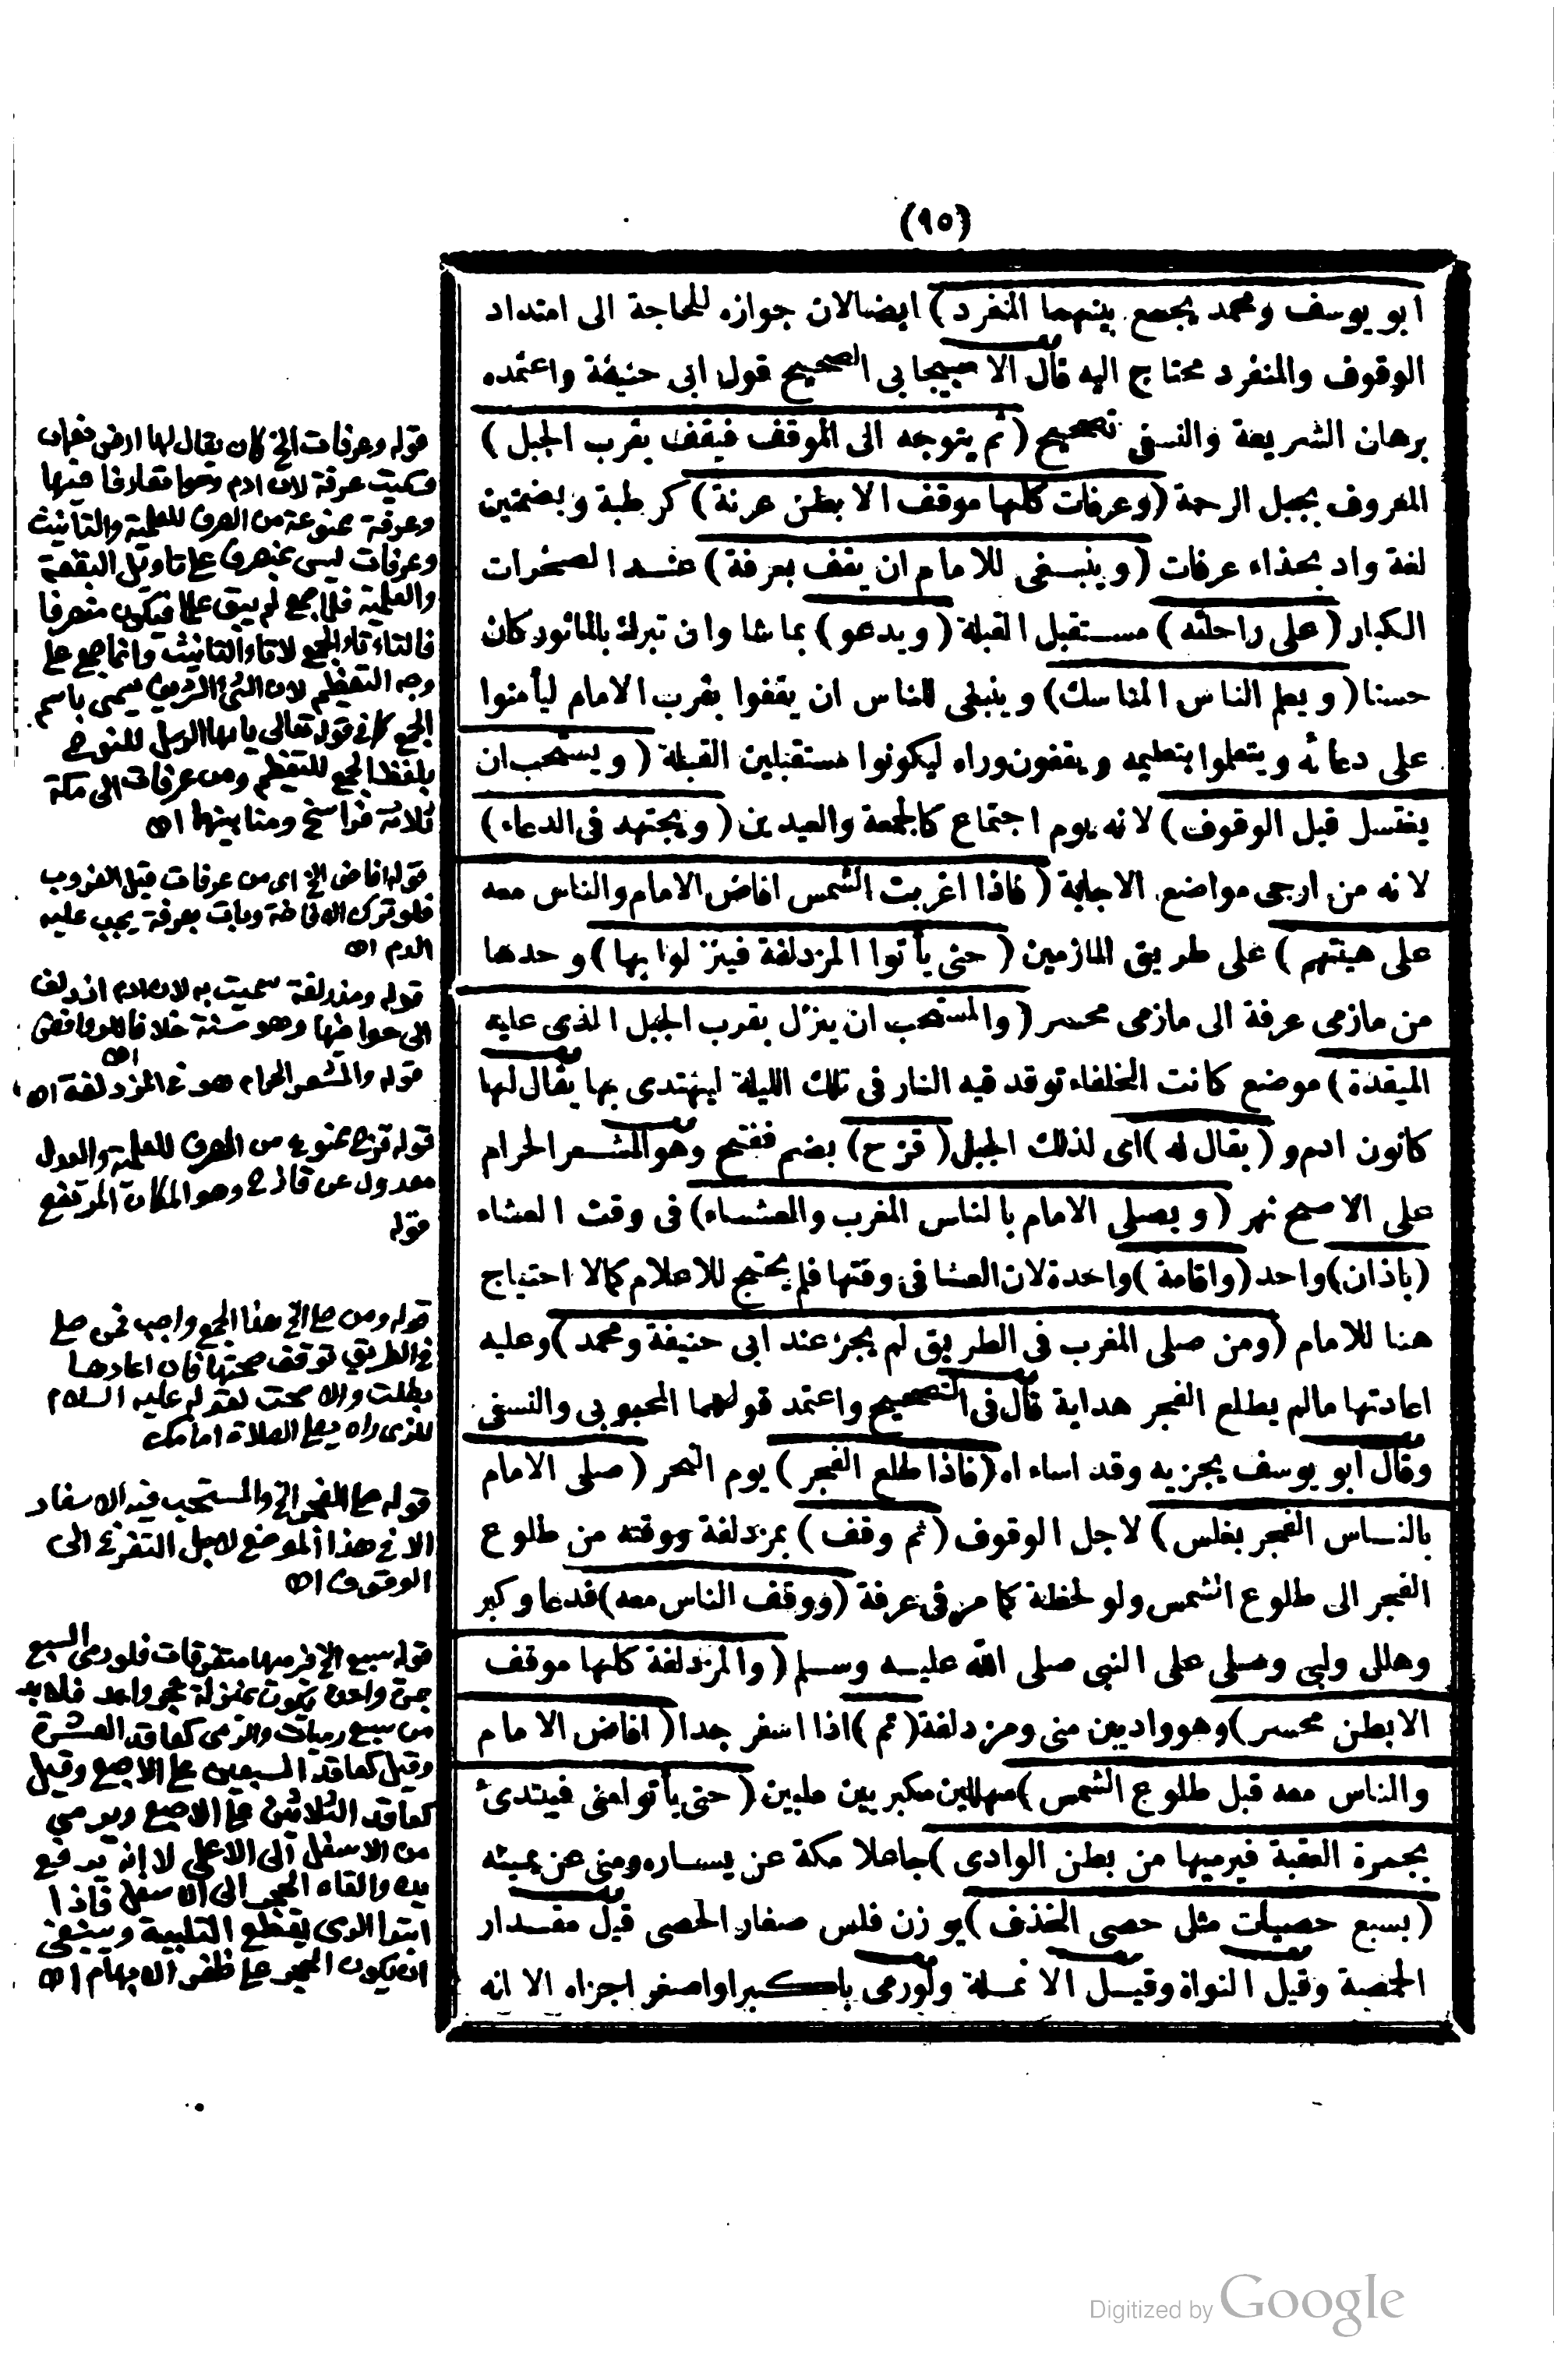 (٩٥)
ابو يوسف ومحمد يجمع بينهما المنفرد) ايضالان جوازه للحاجة الى امتداد
الوقوف والمنفرد محتاج اليه قال الاسبيجابى الصحيح قول ابى حنيفة واعتمده
برهان الشريعة والنسفى تصحيح (ثم يتوجه الى الموقف فيقف بقرب الجبل)
المعروف بجبل الرحمة (وعرفات كلها موقف الا بطن عرنة) كرطبة وبضمتين
لغة واد بحذاء عرفات (وينبغى للامام ان يقف بعرفة) عند الصخرات
الكبار (على راحلته) مستقبل القبلة (ويدعو) بماشا وان تبرك بالمأثور كان
حسنا (ويعلم الناس المناسك) وينبغى للناس ان يقفوا بقرب الامام ليأمنوا
على دعائه ويتعلموا بتعليمه ويقفون وراه ليكونوا مستقبلين القبلة (ويستحب ان
يغتسل قبل الوقوف) لانه يوم اجتماع كالجمعة والعيدين (ويجتهد فى الدعاء)
لانه من ارجى مواضع الاجابة (فاذا اغربت الشمس افاض الامام والناس معه
على هينتهم) على طريق المازمين (حتى يأتوا المزدلفة فينزلوا بها) وحدها
من مازمى عرفة الى مازمى محسر (والمستحب ان ينزل بقرب الجبل الذى عليه
الميقدة) موضع كانت الخلفاء توقد فيه النار فى تلك الليلة ليهتدى بها يقال لها
كانون ادم و (يقال له) اى لذلك الجبل (قزح) بضم ففتح وهو المشعر الحرام
على الاصح نهر (ويصلى الامام بالناس المغرب والعشاء) فى وقت العشاء
(باذان) واحد (واقامة) واحدة لان العشا فى وقتها فلم يحتج للاعلام كمالا احتياج
هنا للامام (ومن صلى المغرب فى الطريق لم يجز عند ابى حنيفة ومحمد) وعليه
اعادتها مالم يطلع الفجر هداية قال فى التصحيح واعتمد قولهما المحبوبى والنسفى
وقال ابو يوسف يجزيه وقد اساء اه (فاذا طلع الفجر) يوم النحر (صلى الامام
بالناس الفجر بغلس) لاجل الوقوف (ثم وقف) بمزدلفة ووقته من طلوع
الفجر الى طلوع الشمس ولو لحظة كما مر فى عرفة (ووقف الناس معه) فدعا وكبر
وهلل ولبى وصلى على النبى صلى الله عليه وسلم (والمزدلفة كلها موقف
الابطن محسر) وهو واد بين منى ومزدلفة (ثم) اذا اسفر جدا (افاض الامام
والناس معه قبل طلوع الشمس) مهللين مكبريين ملبين (حتى يأتوا منى فيبتدئ
بجمرة العقبة فيرميها من بطن الوادى) جاعلا مكة عن يساره ومنى عن يمينه
(بسبع حصيات مثل حصى الخذف) بوزن فلس صغار الحصى قيل مقدار
الحمصة وقيل النواة وقيل الانملة ولورمى باكبر اواصغر اجزاه الا انه
قوله وعرفات الخ كان يقال لها ارض نعمان
فسميت عرفة لان ادم وحوا تعارفا فيها
وعرفة ممنوعة من الصرف للعلمية والتأنيث
وعرفات ليس بمنصرف على تأويل البقعة
والعلمية فلما جمع لم يبق علما فيكون منصرفا
فالتاء تاء الجمع لا تاء التأنيث وانما جمع على
وجه التعظيم لان الشئ الشريف يسمى باسم
الجمع كما فى قوله تعالى يا ايها الرسل
بلفظ الجمع للتعظيم ومن عرفات الى مكة
ثلاثة فراسخ ومنا بينهما اه
قوله افاض الخ اى من عرفات قبل الغروب
فلو ترك الافاضة وبات بعرفة يجب عليه
الدم اه
قوله ومزدلفة سميت به لان ادم ازدلف
الى حوا فيها وهو سنة خلافا للروافض
اه
قوله والمشعر الحرام هو فى المزدلفة اه
قوله قزح ممنوع من الصرف للعلمية والعدل
معدول عن قازح وهو المكان المرتفع
قوله
قوله ومن صلى الخ هذا الجمع واجب فمن صلى
فى الطريق توقف صحتها فان اعادها
بطلت والا صحت لقوله عليه السلام
للذى راه يصلى الصلاة امامك
قوله صلى الفجر الخ والمستحب فيه الاسفار
الا فى هذا الموضع لاجل التفرغ الى
الوقوف اه
قوله سبع الخ فرميها متفرقات فلو رمى السبع
جمرة واحدة يكون بمنزلة حجر واحد فلا بد
من سبع رميات والرمى كعاقد العشرة
وقيل كعاقد السبعين على الاصح وقيل
كعاقد الثلاثين على الاصح ويرمى
من الاسفل الى الاعلى لا انه يرفع
يده والقاء الحجر الى الاسفل فاذا
ابتدا الرمى يقطع التلبية وينبغى
ان يكون الحجر على ظفر الابهام اه
Digitized by Google